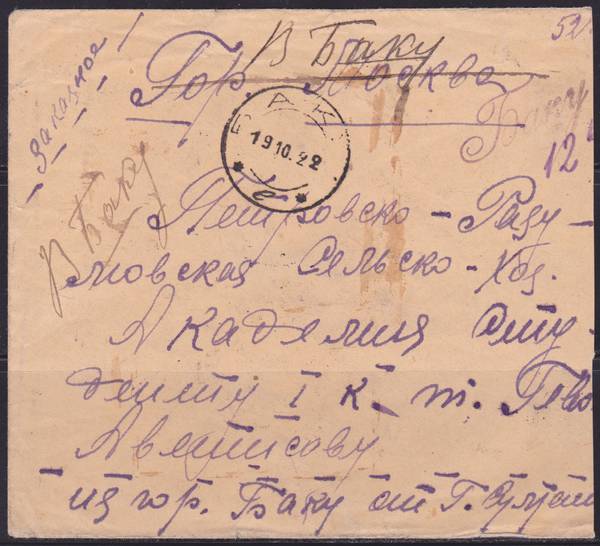 52
В Баку
Заказное
Гор. Москва
Баку
БАК
19 10. 22
12
г
В Баку
Петровско-Разу-
мовская Сельско-Хоз.
Академия Сту-
денту I к. т. Гево
Аветисову
из гор. Баку от Г.